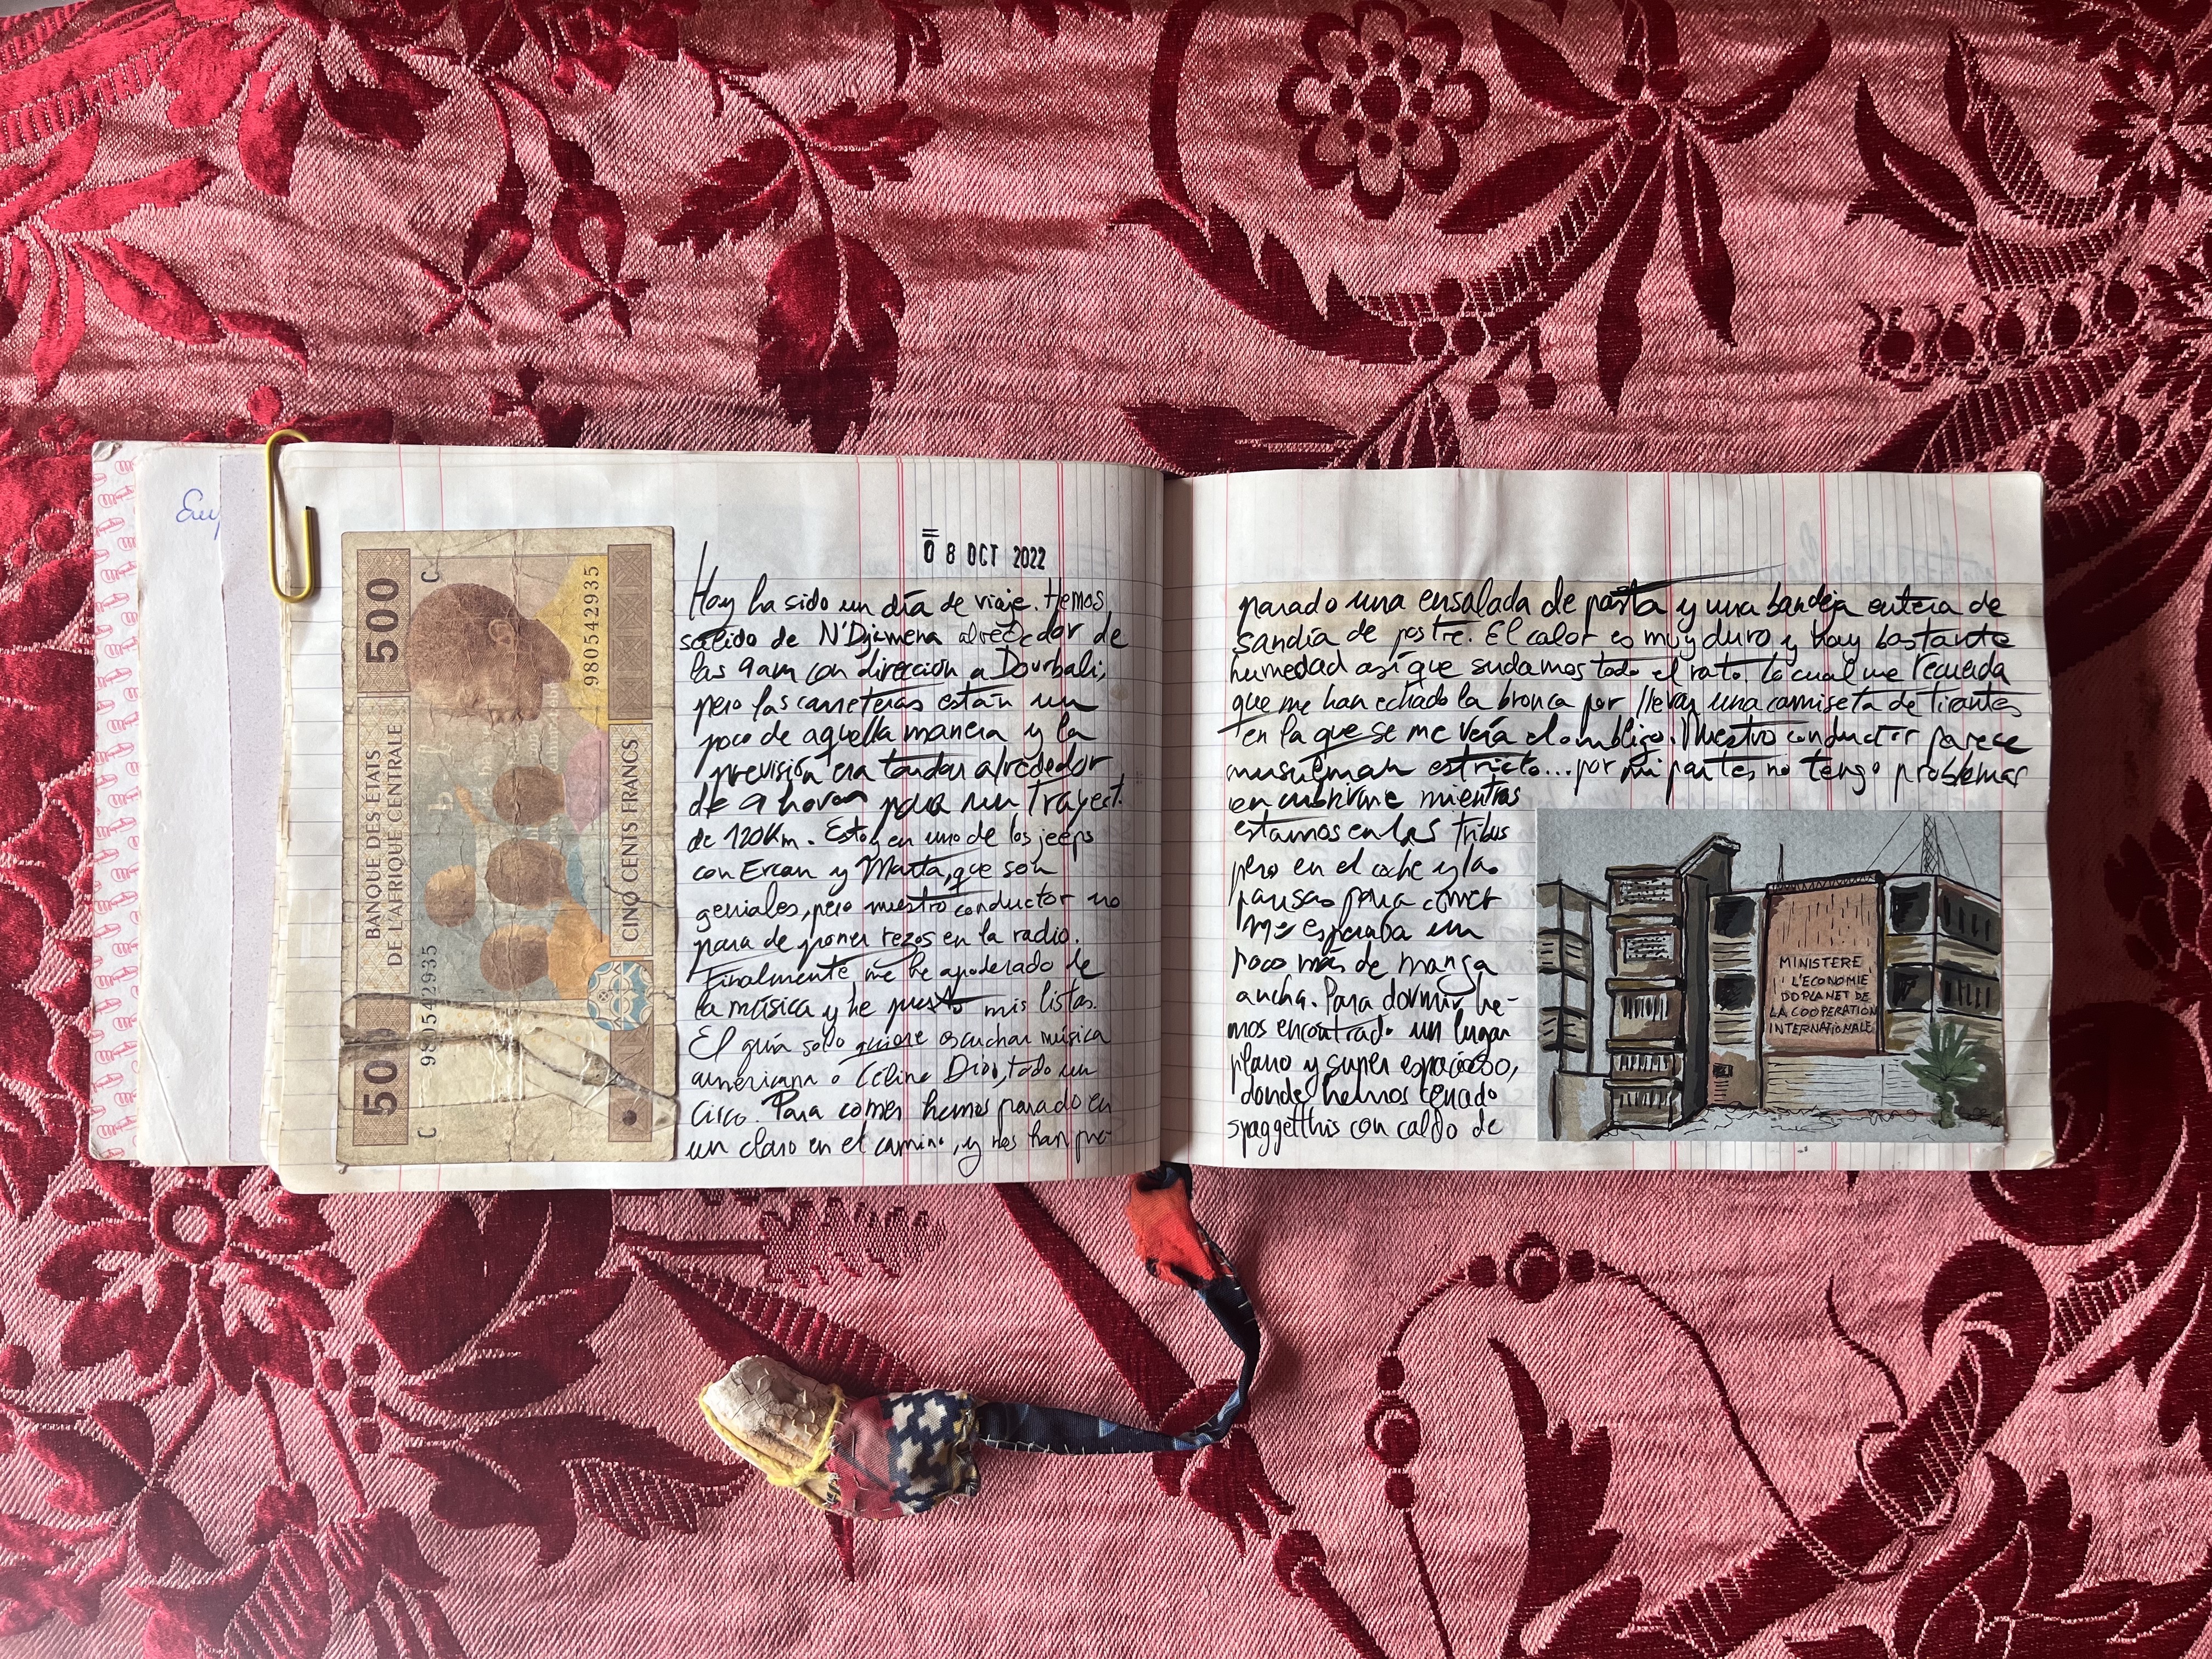 Eug
500
BANQUE DES ÉTATS
DE L'AFRIQUE CENTRALE
C
980542935
500
C
980542935
CINQ CENTS FRANCS
08 OCT 2022
Hoy ha sido un día de viaje. Hemos
salido de N'Djamena alrededor de
las 9am con dirección a Dourbali,
pero las carreteras están un
poco de aquella manera y la
previsión era tardar alrededor
de 9 horas para un trayect.
de 120Km. Estoy en uno de los jeeps
con Ercan y Marta, que son
geniales, pero nuestro conductor no
para de poner rezos en la radio.
Finalmente me he apoderado de
la música y he puesto mis listas.
El guía solo quiere escuchar música
americana o Céline Dion, todo un
circo. Para comer hemos parado en
un claro en el camino, y nos han pre-
parado una ensalada de pasta y una bandeja entera de
sandía de postre. El calor es muy duro y hay bastante
humedad así que sudamos todo el rato. Lo cual me recuerda
que me han echado la bronca por llevar una camiseta de tirantes
en la que se me veía el ombligo. Nuestro conductor parece
musulmán estricto... por mi parte, no tengo problemas
en cubrirme mientras
estamos en las tribus
pero en el coche y las
pausas para comer
me esperaba un
poco más de manga
ancha. Para dormir he-
mos encontrado un lugar
plano y super espacioso,
donde hemos cenado
spaggetthis con caldo de
MINISTERE
L'ECONOMIE
DDPLANET DE
LA COOPERATION
INTERNATIONALE